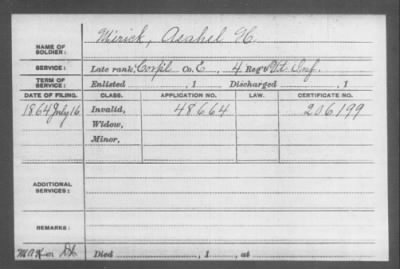 NAME OF SOLDIER: Mirick, Asahel H.
SERVICE: Late rank, Corp'l Co. E, 4 Reg't Vt. Inf.
TERM OF SERVICE: Enlisted , 1 Discharged , 1
DATE OF FILING. CLASS. APPLICATION NO. LAW. CERTIFICATE NO.
1864 July 16. Invalid, 48664 206199
Widow,
Minor,
ADDITIONAL SERVICES:
REMARKS:
Died , 1 , at